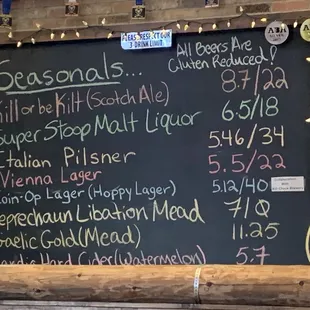 PLEASE RESPECT OUR
3 DRINK LIMIT
All Beers Are
Gluten Reduced!
Seasonals...
Kill or be Kilt (Scotch Ale) 8.7/22
Super Stoop Malt Liquor 6.5/18
Italian Pilsner 5.46/34
Vienna Lager 5.5/22
Lager (Hoppy Lager) 5.12/40
Leprechaun Libation Mead 7/0
Gaelic Gold (Mead) 11.25
Hard Cider (Watermelon) 5.7